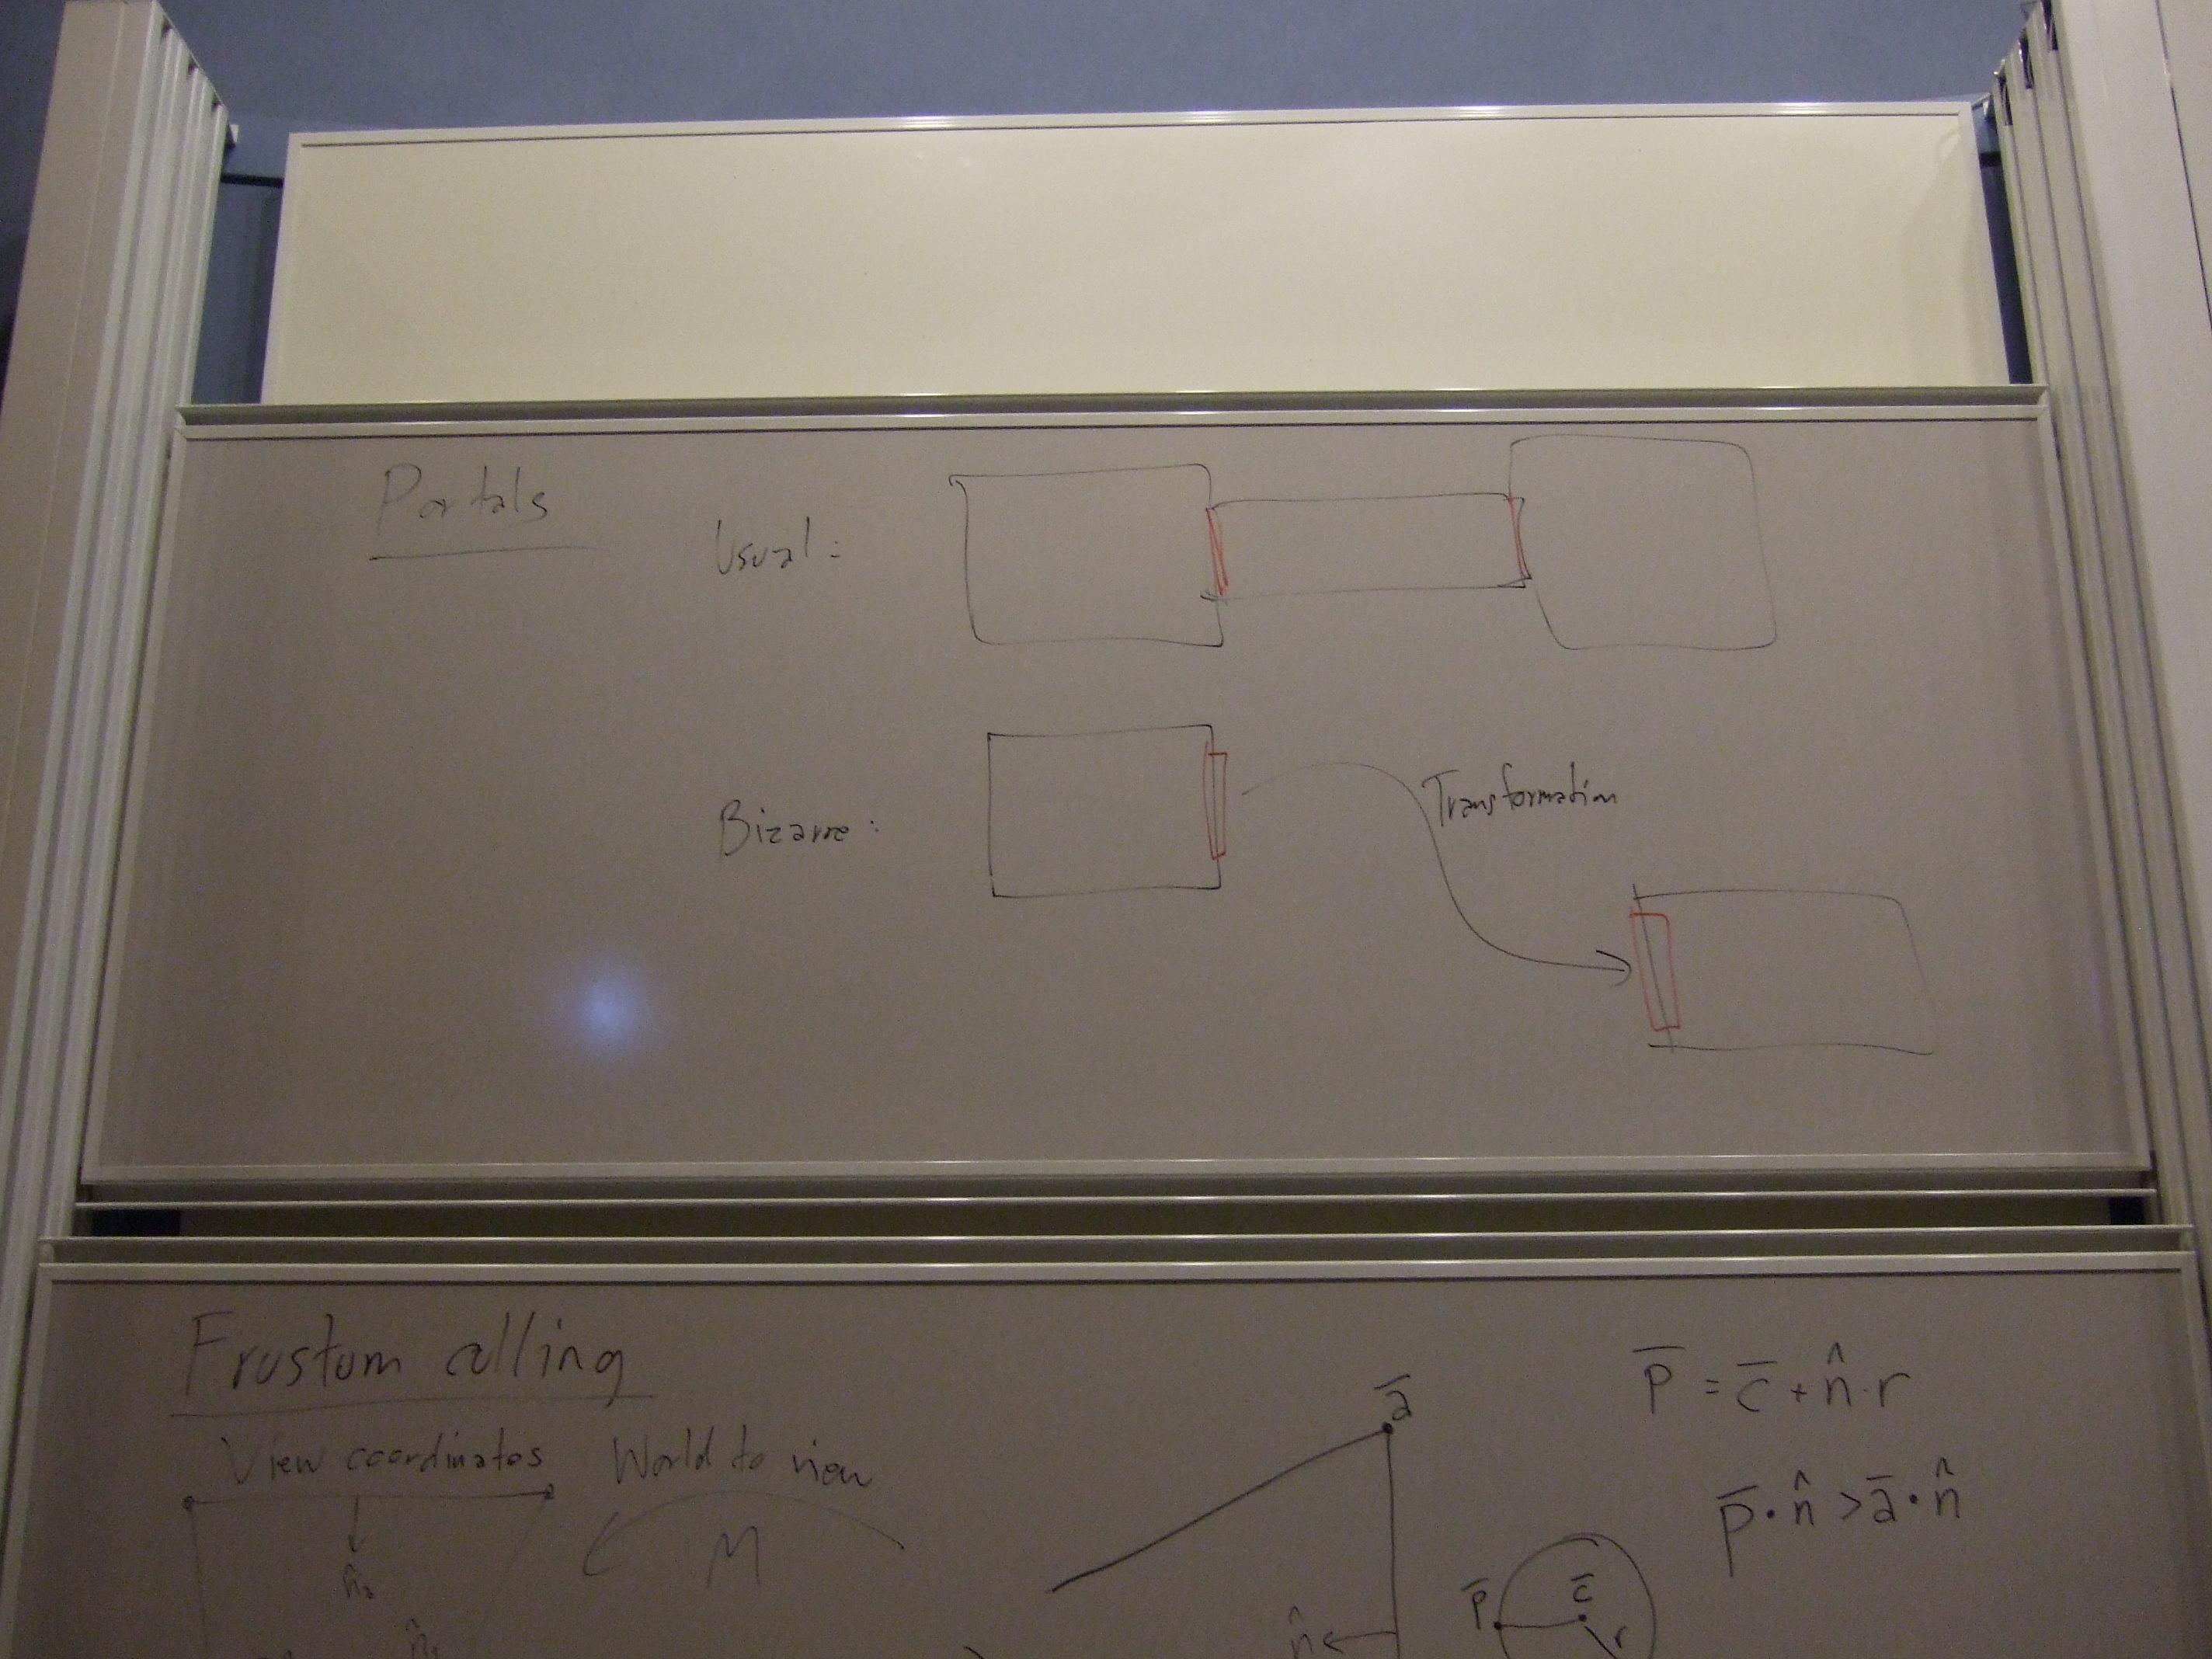 Portals
Usual:
Bizarre:
Transformation
Frustum culling
View coordinates
World to view
M
n̂₂
n̂
a̅
p̅ = c̅ + n̂·r
p̅·n̂ > a̅·n̂
n̂
p̅
c̅
r